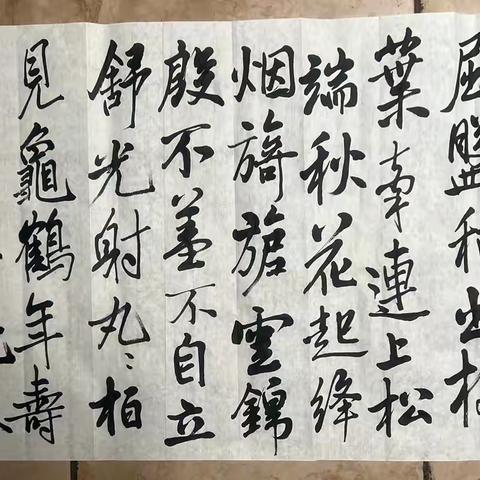 屈盤出
葉牽連上松
端秋花起絳
烟旖旎雲錦
殷不羞不自立
舒光射丸〻柏
見龜鶴年壽